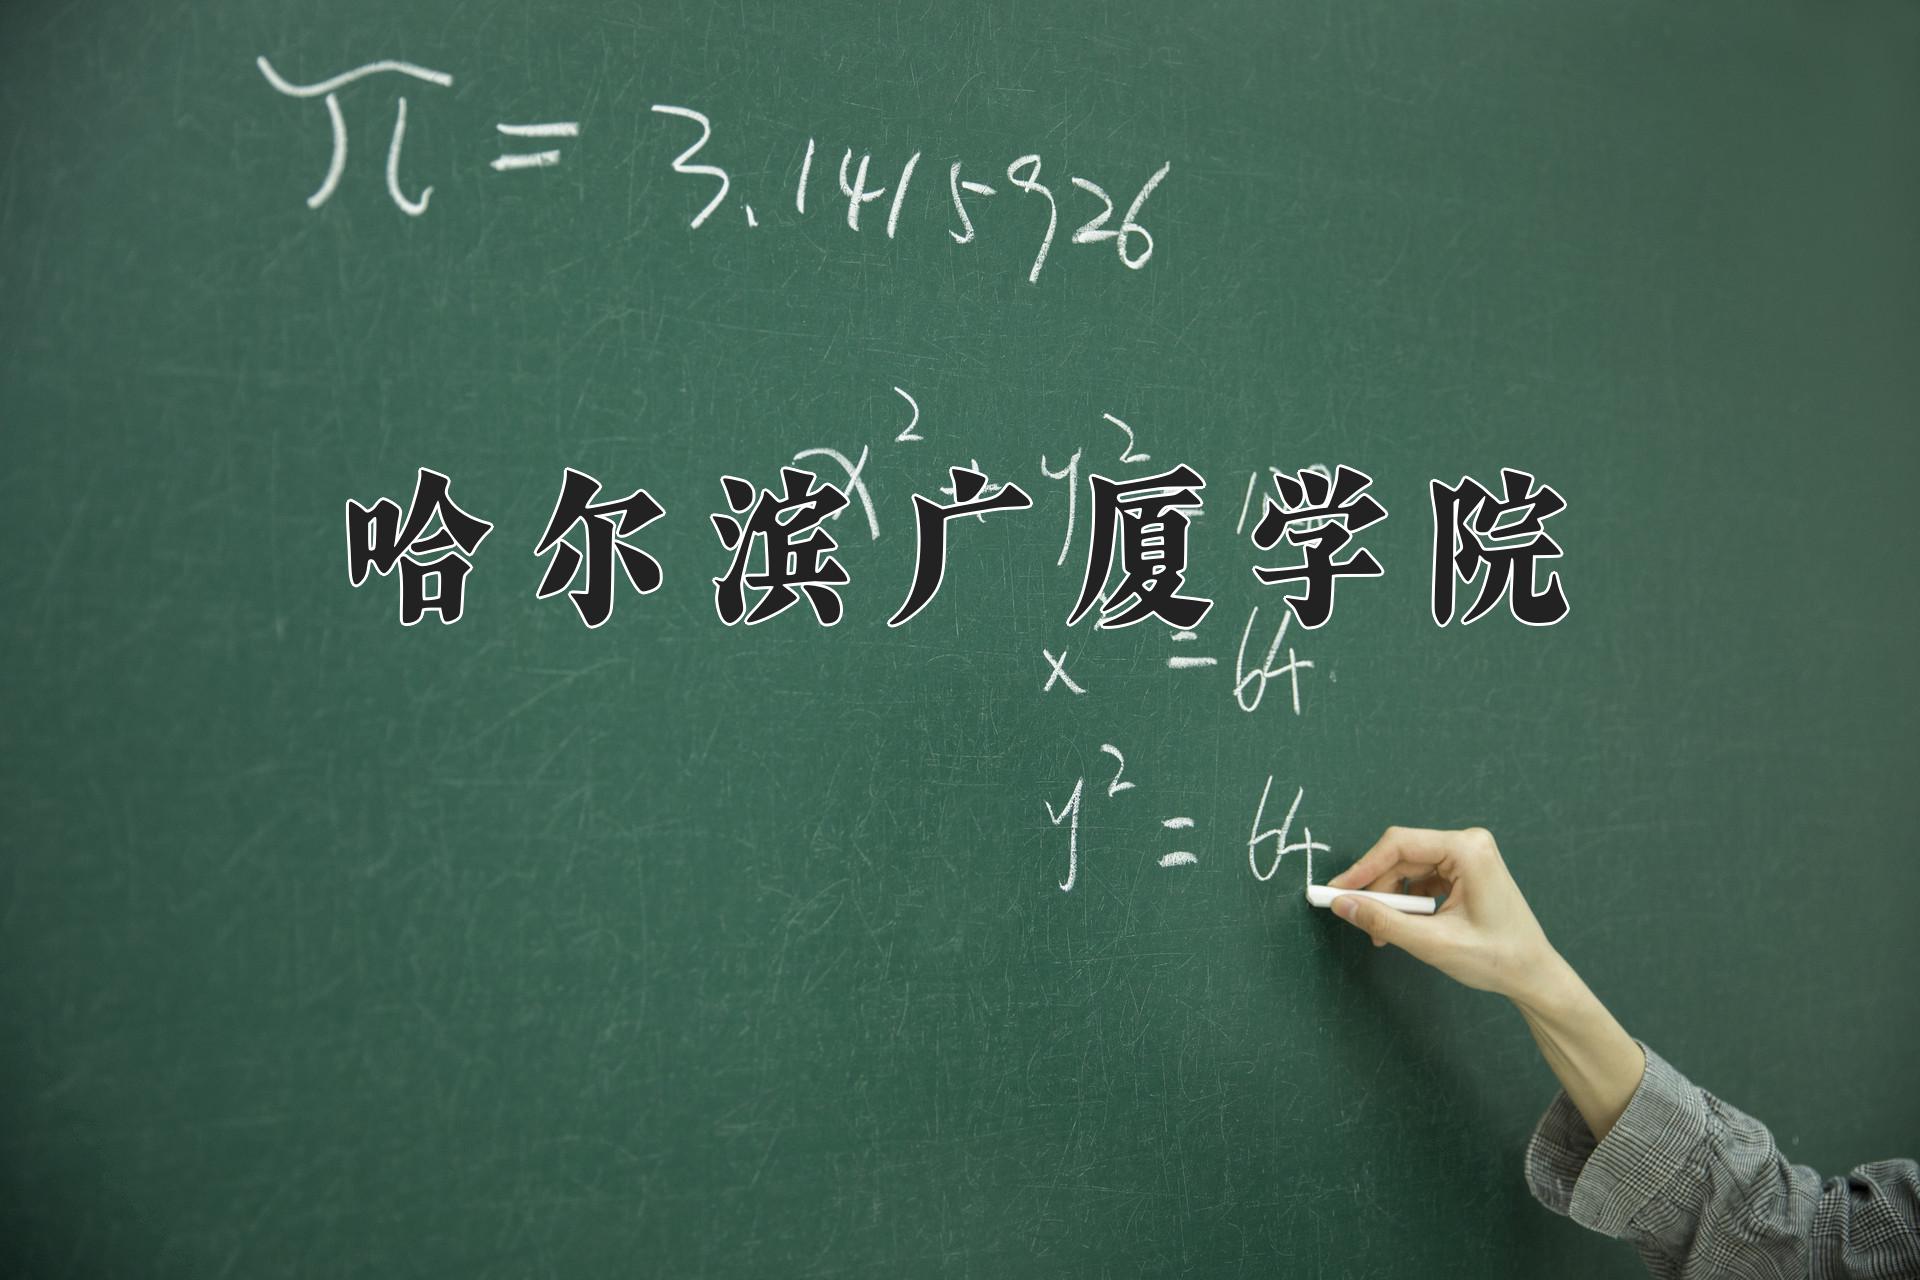 π = 3.1415926
x² + y² =
哈尔滨广厦学院
x² = 64
y² = 64